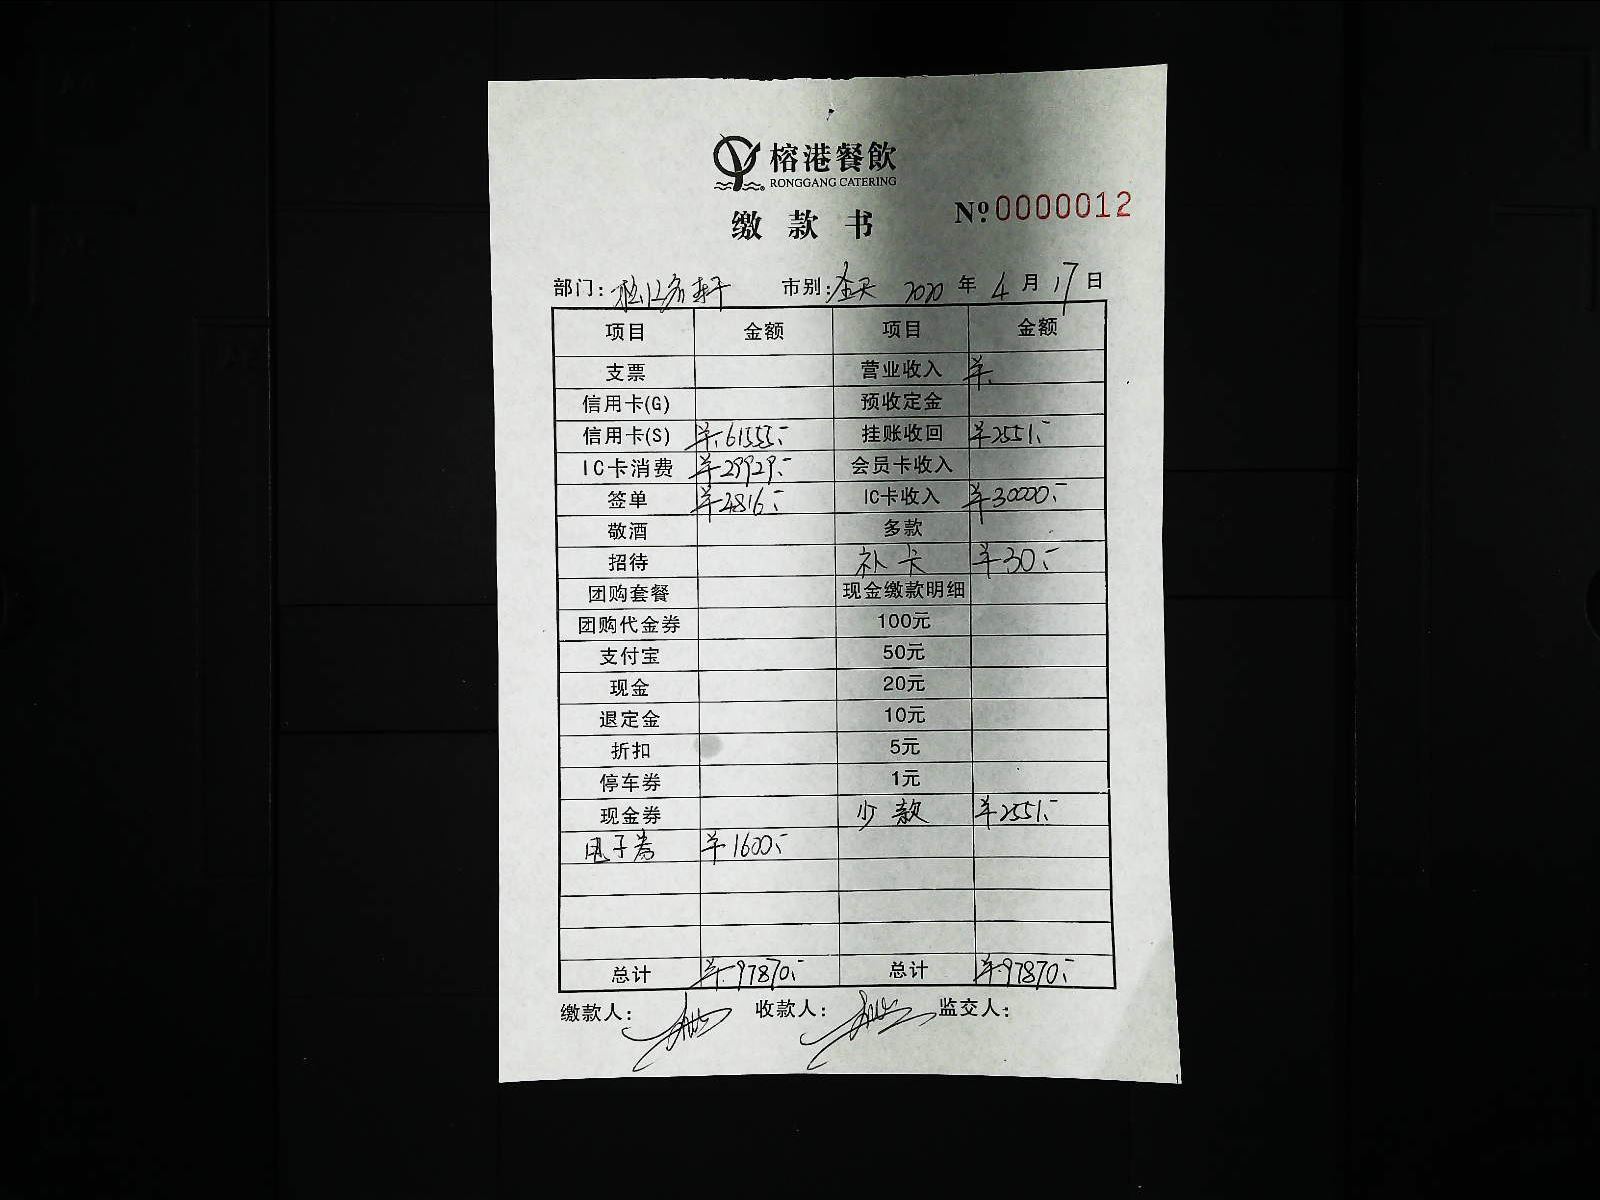 榕港餐飲
RONGGANG CATERING
缴款书 Nº 0000012
部门: 市别: 全天 2020年4月17日
项目 金额 项目 金额
支票 营业收入 ¥
信用卡(G) 预收定金
信用卡(S) ¥61555.- 挂账收回 ¥2551.-
IC卡消费 ¥29929.- 会员卡收入
签单 ¥4816.- IC卡收入 ¥30000.-
敬酒 多款
招待 补卡 ¥30.-
团购套餐 现金缴款明细
团购代金券 100元
支付宝 50元
现金 20元
退定金 10元
折扣 5元
停车券 1元
现金券 少款 ¥2551.-
电子券 ¥1600.-
总计 ¥97870.- 总计 ¥97870.-
缴款人: 收款人: 监交人: